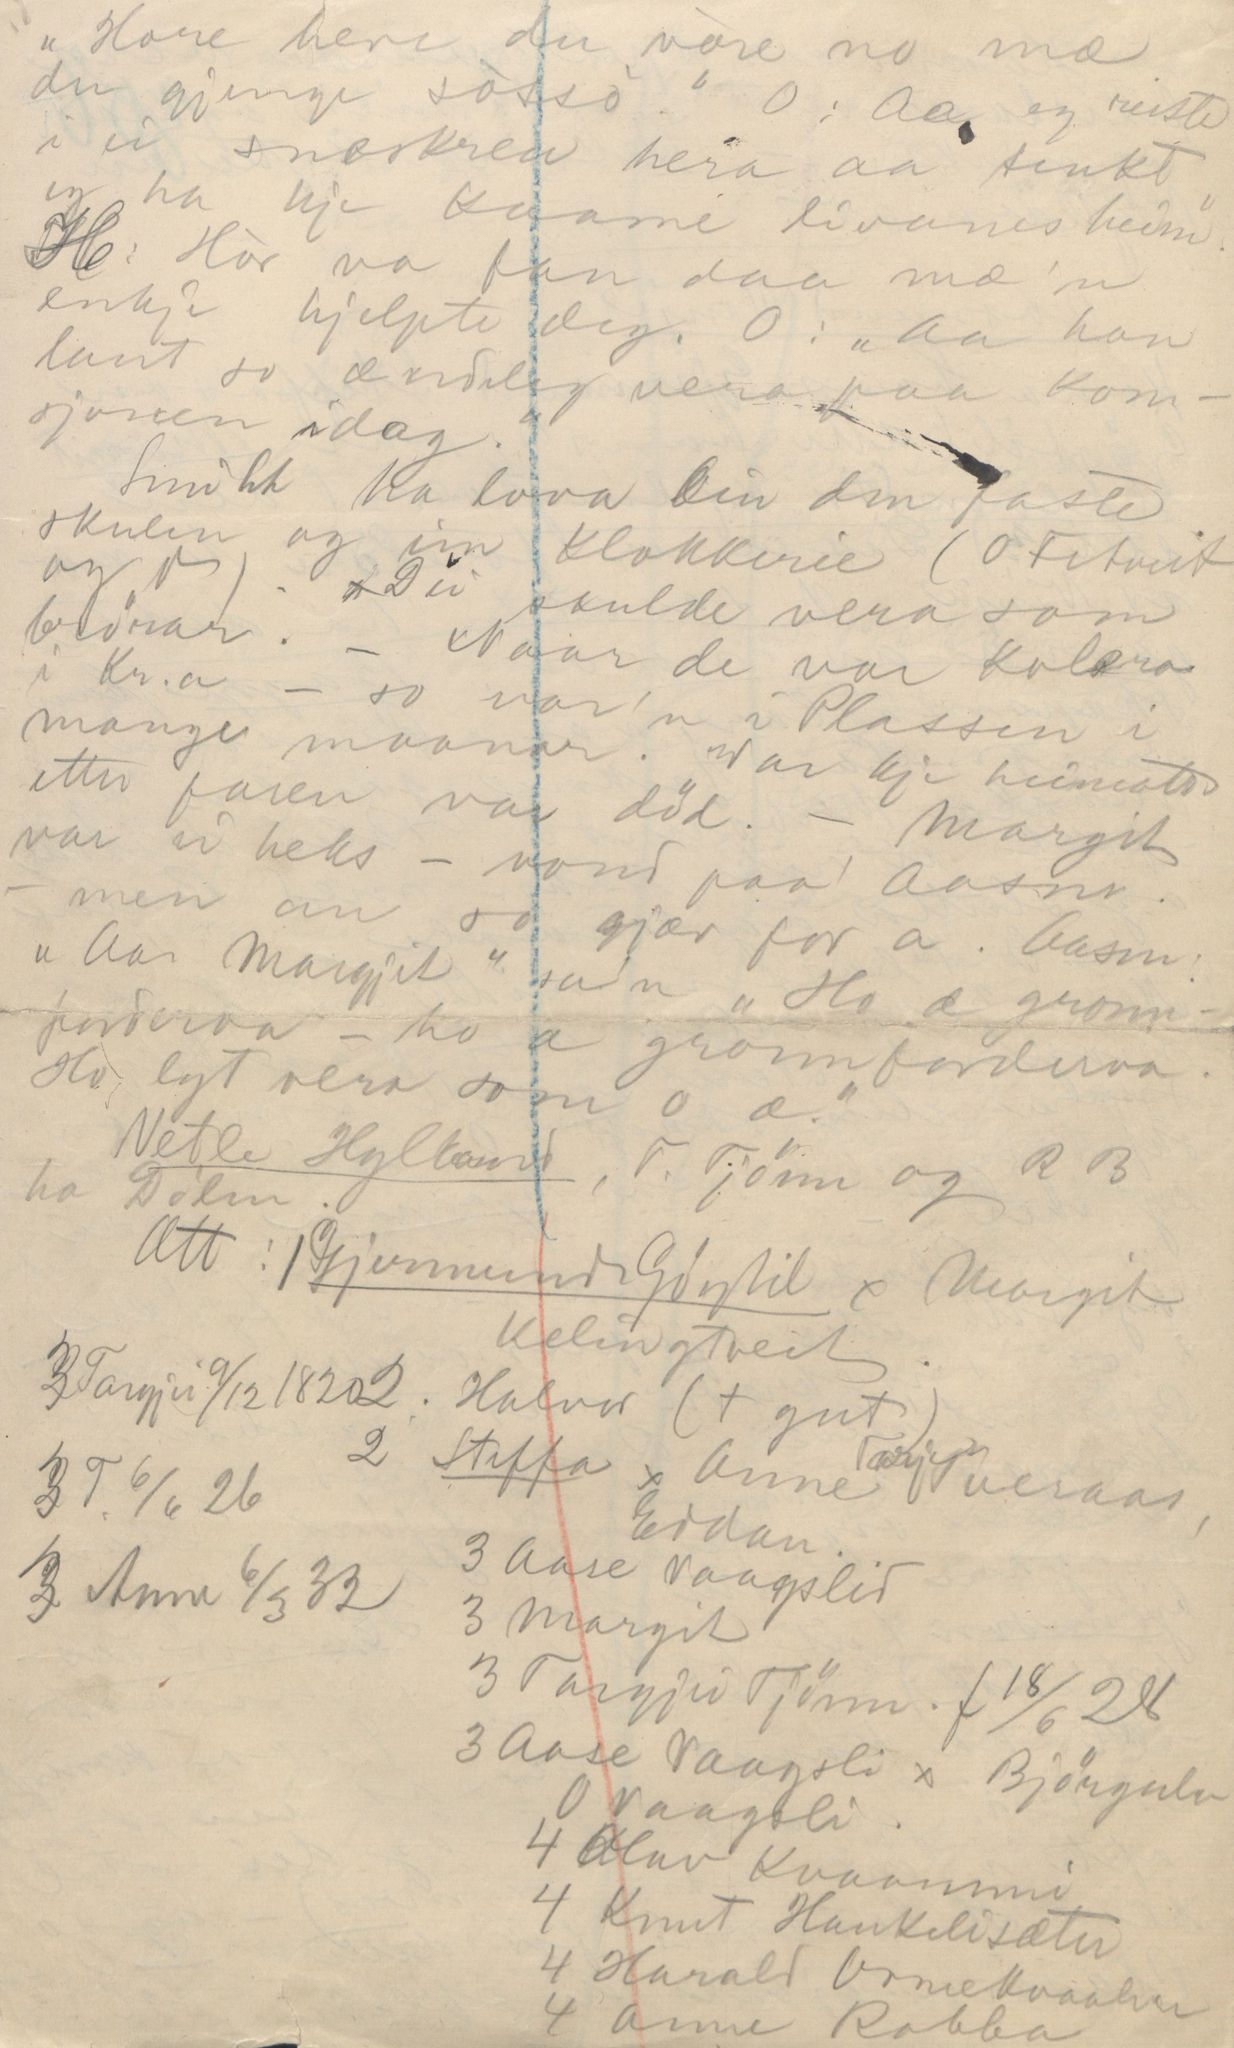 "Hore here du vòre no mæ
du gjenge sòssò." O: Aa, eg reiste
i ei snøskrea hera aa tenkt
eg ha kje kaame livanes heim".
H: Hòr va fan daa mæ'n
enkje hjelpte deg. O: "Aa han
laut so ændeleg vera paa Kom-
sjonen idag."
Smihh ha lova ein den faste
skulen og ein Klokkerie (O Fetveit
og ). Dei skulde vera som
brörar. - Naar de var Kolera
i Kr.a - so var'n i Plassen i
mange maanar. Var kje heimatt
etter faren var död. - Margit
var ei heks - vond paa Aasne.
- men an so gjær for a. Aasm:
"Aar Margjit" sa'n "Ho æ gronn-
forderva - ho æ gronnforderva.
Ho lyt vera som o æ."
Netle Hylland, T. Tjönn og R B
ha Dölen.
Ætt: 1 Gjermund Göystil x Margit
Kelingtveit.
3 Targjei 9/12 1820 2. Halvor (+ gut)
2 Steffa x Anne Tarjei Tveraas,
Eddan.
3 T. 6/6 26
3 Aase Vaagslid
3 Anne 6/3 33
3 Margit
3 Targjei Tjönn. f 18/6 28
3 Aase Vaagsli x Björgulv
O Vaagsli.
4 Olav Kvaammi
4 Knut Haukelisæter
4 Harald Ormekvaalen
4 Anne Rabba